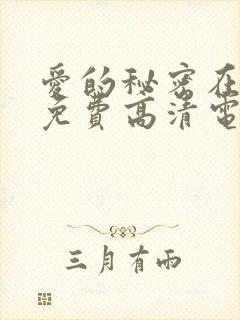 愛的秘密在
免費高清電
三月有雨